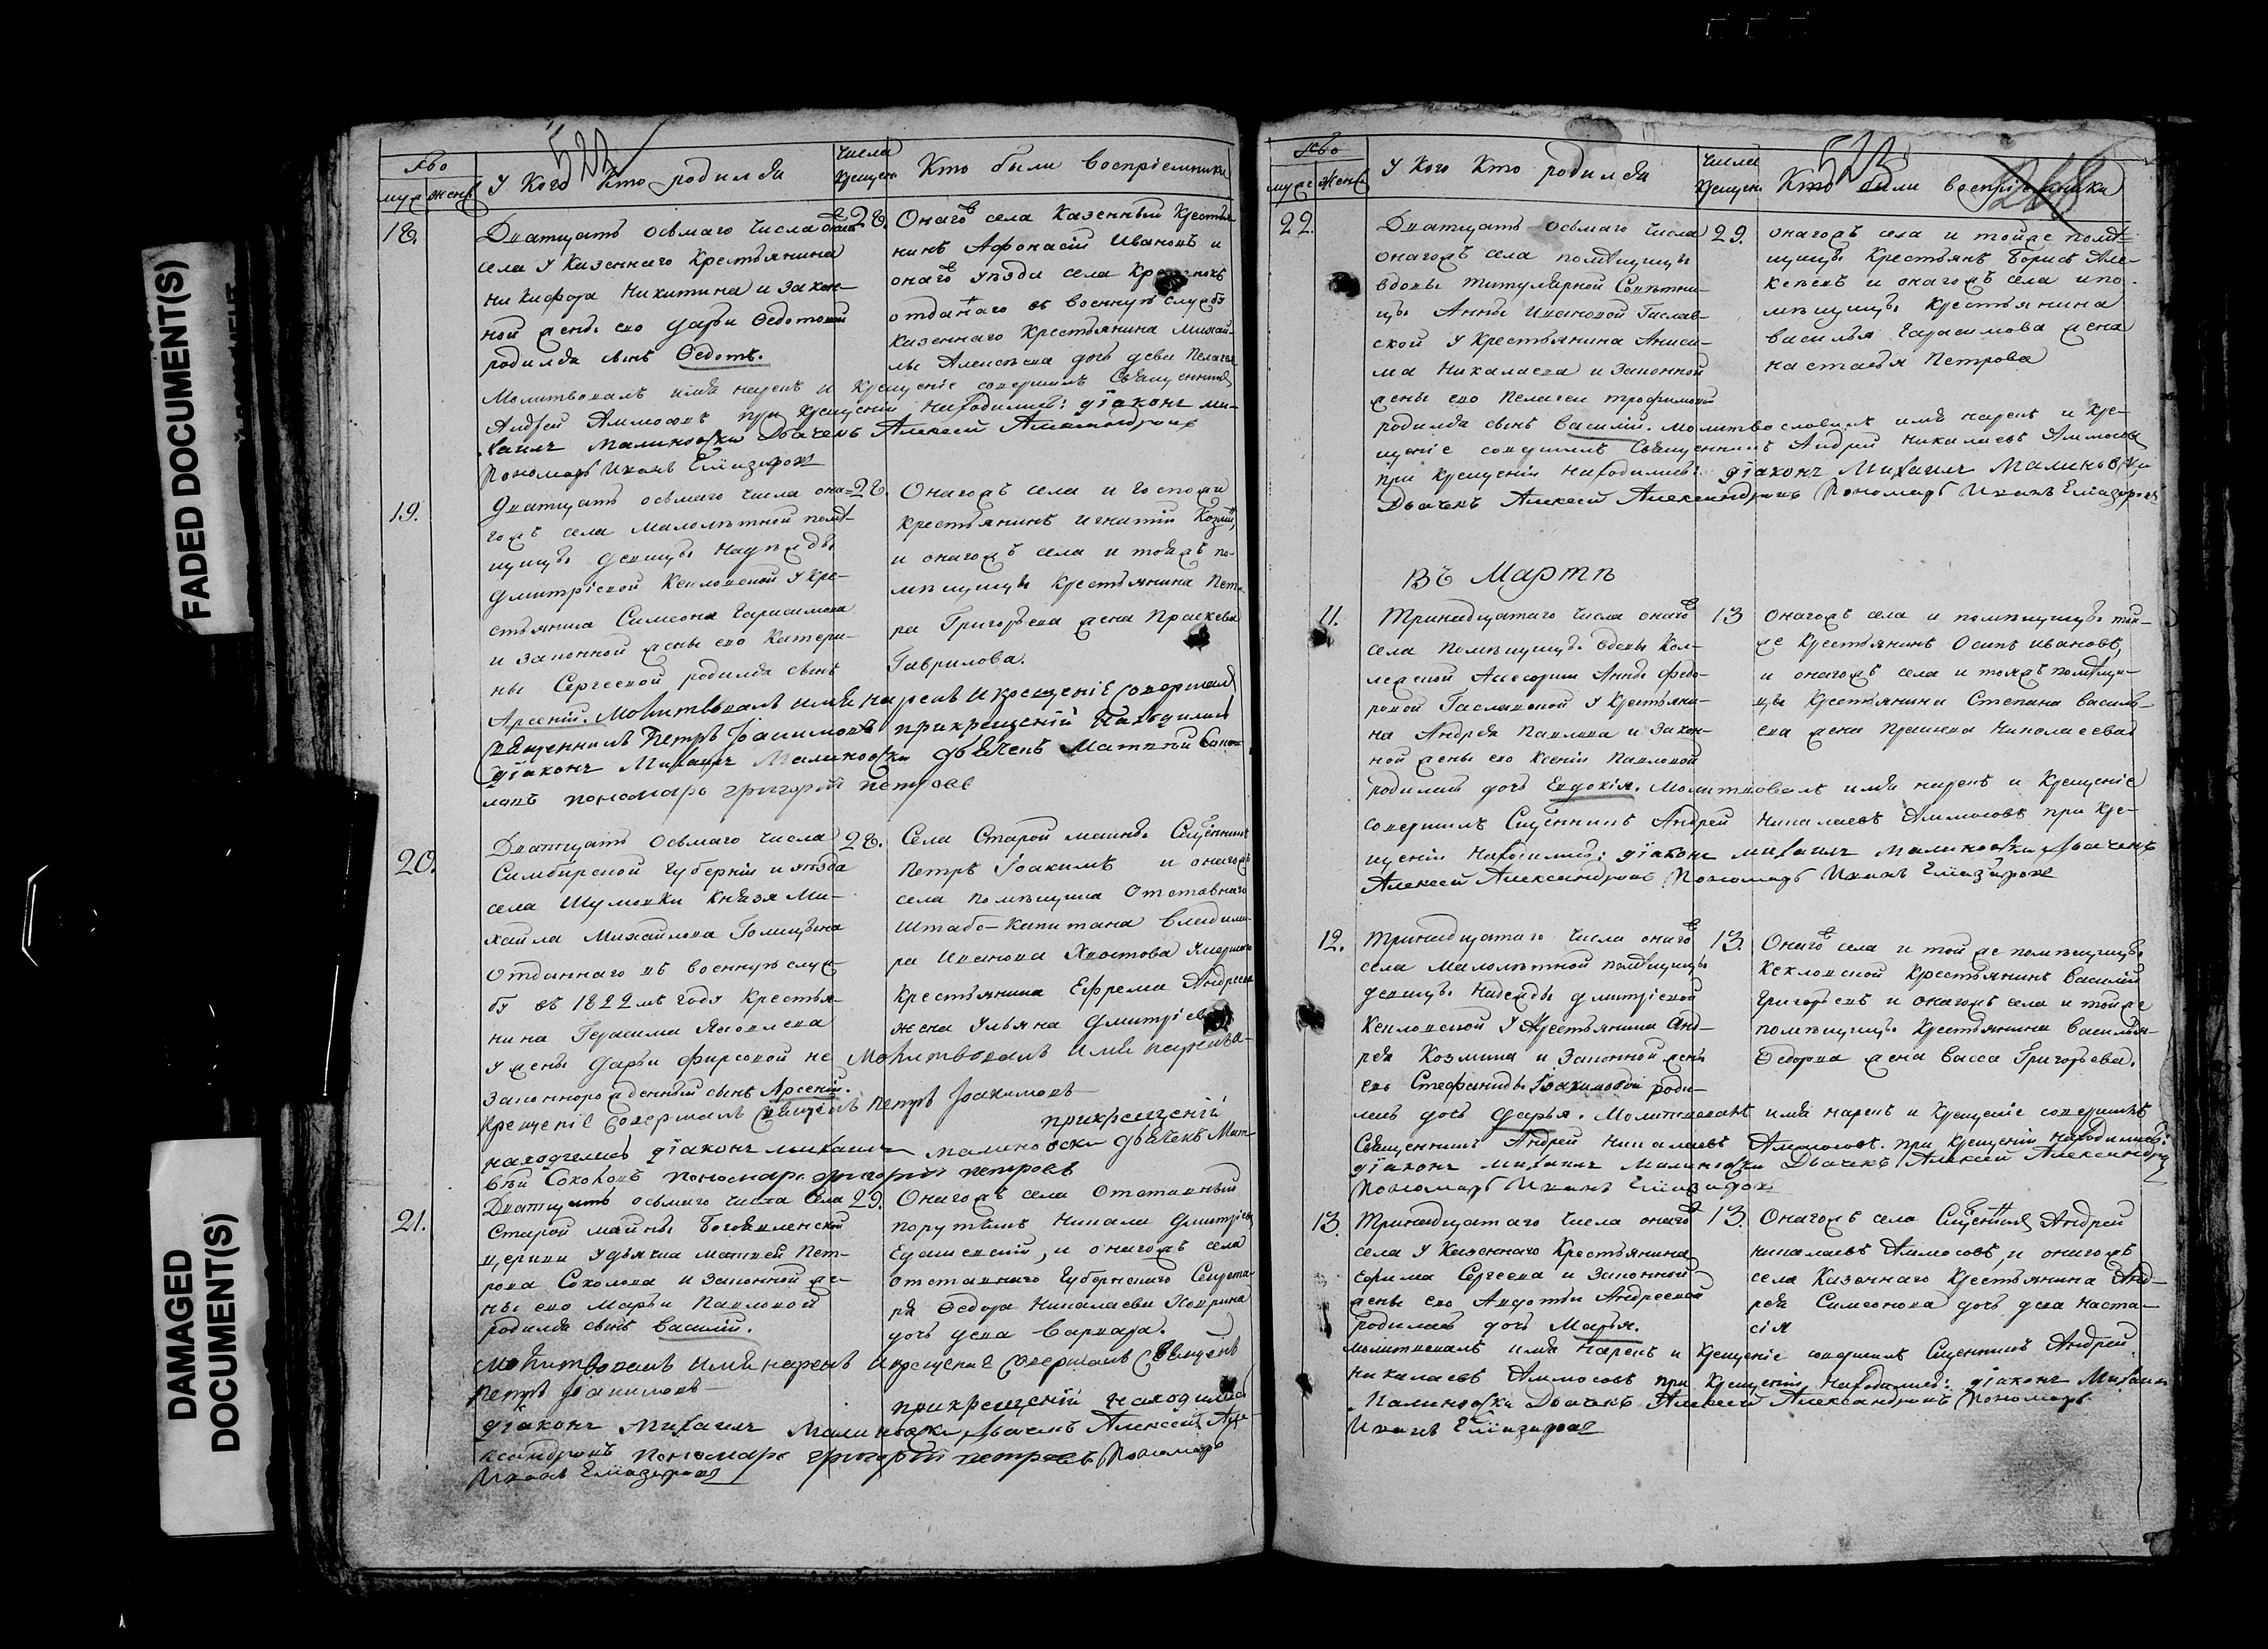 FADED DOCUMENT(S)
DAMAGED DOCUMENT(S)
522
муже женс
У Кого Кто родился
Числа крещен
Кто были воспріемники
18.
Дватцать осьмаго числа онаго
села у казеннаго крестьянина
Никифора Никитина и закон-
ной жены его Дарьи Федотовой
родился сынъ Федотъ.
28.
Онаго села казенный крестья
нинъ Афонасій Ивановъ и
онаго уѣзда села
отданаго въ военную службу
казеннаго крестьянина Михай-
лы Алексѣева дочь девка Пелагея
Молитвовалъ имя нарекъ и крещеніе совершилъ Священникъ
Андрей Аммосовъ при крещеніи находились: діаконъ Ми-
хаилъ Малиновски Дьячекъ Алексей Александровъ
Пономарь Иванъ Еліазаровъ
19.
Дватцать осьмаго числа она-
гожъ села малолѣтной помѣ-
щицы девицы Надежды
Дмитріевой Кекловской у кре-
стьянина Симеона Гарасимова
и законной жены его Катери-
ны Сергеевой родился сынъ
28.
Онагожъ села и госпожи
крестьянинъ Игнатій Козмин,
и онагожъ села и тояжъ по-
мѣщицы крестьянина Пет-
ра Григорьева жена Праскева
Гаврилова.
Арсеній. Молитвовалъ имя нарекъ и крещеніе совершалъ
священникъ Петръ Іоакимовъ при крещеній находились
діаконъ Михаилъ Малиновски дьячекъ Матвѣй Соко-
ловъ пономарь григорій петровъ
20.
Дватцать осьмаго числа
Симбирской губерніи и уѣзда
села Шумовки Князя Ми-
хайла Михайлова Голицына
отданнаго въ военную служ
бу въ 1822мъ годя крестья-
нина Герасима Яковлева
у жены Дарьи Фирсовой не
законнорожденный сынъ Арсеній.
28.
Села Старой майны Священникъ
Петръ Іоакимъ и онагожъ
села помѣщика отставнаго
Штабс-Капитана Владими-
ра Иванова Хвостова
крестьянина Ефрема Андреева
жена Ульяна Дмитріева
Молитвовалъ имя нарекъ и
крещеніе совершалъ священикъ Петръ Іоакимовъ
при крещеній
находились діаконъ михаилъ малиновски дьячекъ Мат-
вѣй Соколовъ пономарь григорій петровъ
21.
Дватцать осьмаго числа села
Старой майны Богоявленской
церкви у дьячка Матвея Пет-
рова Соколова и законной же-
ны его Марьи Павловой
родился сынъ Василій.
29.
Онагожъ села отставный
порутчикъ Никала Дмитріевъ
и онагожъ села
отставнаго губернскаго Секрета-
ря Федора Никалаева
дочь девка Варвара.
Молитвовалъ имя нарекъ и крещеніе совершалъ священикъ
Петръ Іоакимовъ
при крещеній находились
діаконъ Михаилъ Малиновски Дьячекъ Алексей Але-
ксандровъ пономарь григорій петровъ Пономарь
Иванъ Еліазаровъ
523
268
муже женс
У Кого Кто родился
Числа крещен
Кто были воспріемники
22.
Дватцать осьмаго числа
онагожъ села помѣщицы
вдовы титулярной совѣтни-
цы Анны Ивановой Гаслав-
ской у крестьянина Аниси-
ма Никалаева и законной
жены его Пелагеи Трофимовой
29.
онагожъ села и тойже помѣ-
щицы крестьянъ Борисъ Але-
ксеевъ и онагожъ села и по-
мѣщицы крестьянина
Василья Гарасимова жена
Настасья Петрова
родился сынъ Василій. Молитвословилъ имя нарекъ и кре-
щеніе совершилъ Священникъ Андрей Никалаевъ Аммосовъ
при крещеніи находились: діаконъ Михаилъ Малиновски
Дьячекъ Алексей Александровъ Пономарь Иванъ Еліазаровъ
Въ Мартѣ
11.
Тринадцатаго числа онаго
села помѣщицы вдовы Кол-
лежской Ассесорши Анны Федо-
ровой Гаславской у крестьяни-
на Андрея Павлова и закон-
ной жены его Ксеніи Павловой
13
Онагожъ села и помѣщицы той-
же крестьянинъ Осипъ Ивановъ,
и онагожъ села и тояжъ помѣщи-
цы крестьянина Степана Василь-
ева жена Прасковья Николаева
родилась дочь Евдокія. Молитвовалъ имя нарекъ и крещеніе
совершилъ Священникъ Андрей Никалаевъ Аммосовъ при кре-
щеніи находились: діаконъ михаилъ малиновски Дьячекъ
Алексей Александровъ Пономарь Иванъ Еліазаровъ
12.
Тринадцатаго числа онаго
села малолѣтной помѣщицы
девицы Надежды Дмитріевой
Кекловской у крестьянина Анд-
рея Козмина и законной жены
его Стефаниды Іоакимовой роди-
13.
Онаго села и той же помѣщицы
Кекловской крестьянинъ Василій
Григорьевъ и онагожъ села и тойже
помѣщицы крестьянина Василья
Федорова жена Васса Григорьева.
лась дочь Дарья. Молитвовалъ имя нарекъ и крещеніе совершилъ
Священникъ Андрей Никалаевъ Аммосовъ. при крещеніи находились:
діаконъ михаилъ Малиновски Дьячекъ Алексей Александровъ
Пономарь Иванъ Еліазаровъ
13.
Тринадцатаго числа онаго
села у казеннаго крестьянина
Ефима Сергеева и законной
жены его Авдотьи Андреевой
родилась дочь Марья.
13.
Онагожъ села Священникъ Андрей
Никалаевъ Аммосовъ, и онагожъ
села казеннаго крестьянина Анд-
рея Симеонова дочь девка Наста-
сія
Молитвовалъ имя нарекъ и крещеніе совершилъ Священникъ Андрей
Никалаевъ Аммосовъ при крещеніи находились: діаконъ Михаилъ
Малиновски Дьячекъ Алексей Александровъ Пономарь
Иванъ Еліазаровъ